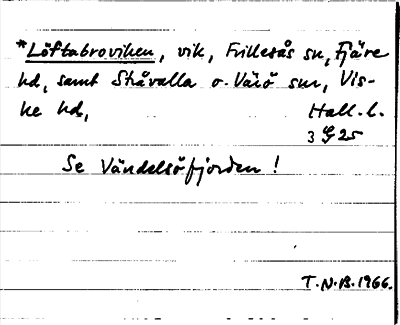 *Löftabroviken, vik, Frillesås sn, Fjäre
hd, samt Stråvalla o. Värö snr, Vis-
ke hd, Hall. l.
3 G 25
Se Vändelsöfjorden!
T.N.B. 1966.